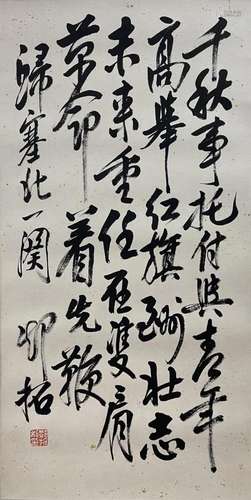 千秋事托付與青年
高舉红旗酬壮志
未来重任在雙肩
革命着先鞭
歸塞北一阕 邓拓